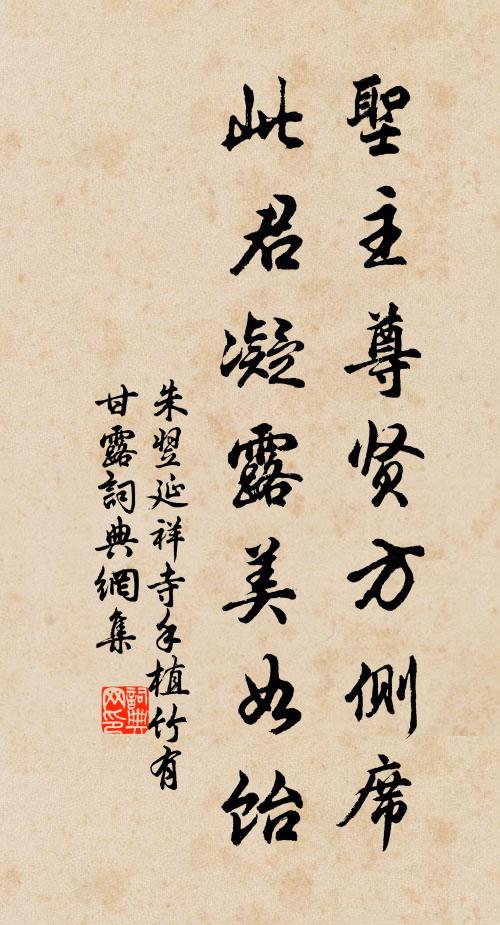 聖主尊贤方侧席
此君凝露美如飴
朱翌延祥寺手植竹有
甘露詞典網集
詞典网印